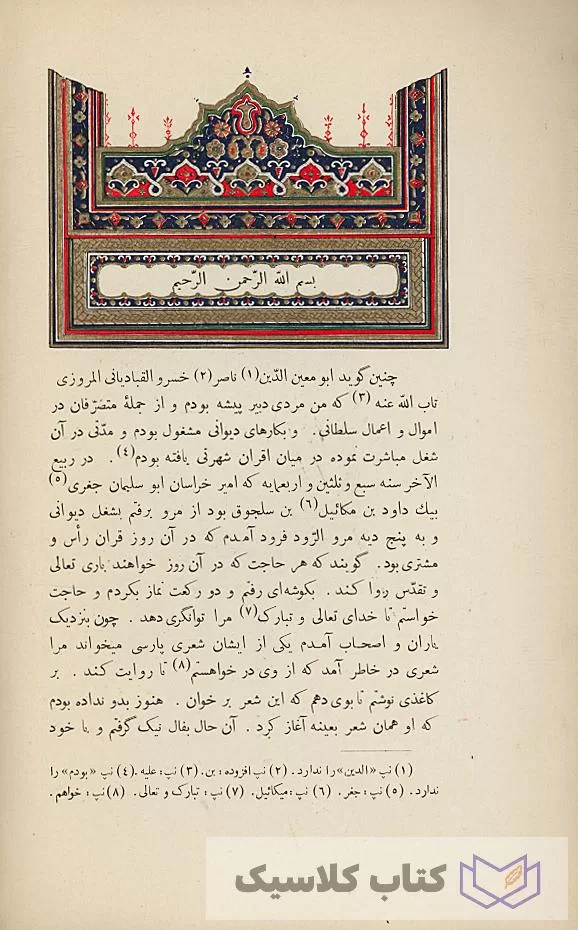 بسم اللّه الرّحمن الرّحیم
چنین گوید ابو معین الدّین(۱) ناصر(۲) خسرو القبادیانی المروزی
تاب اللّه عنه (۳) که من مردی دبیر پیشه بودم و از جملهٔ متصرّفان در
اموال و اعمال سلطانی. و بکارهای دیوانی مشغول بودم و مدّتی در آن
شغل مباشرت نموده در میان اقران شهرتی یافته بودم(۴). در ربیع
الآخر سنه سبع و ثلثین و اربعمایه که امیر خراسان ابو سلیمان جغری(۵)
بیك داود بن مکائیل(۶) بن سلجوق بود از مرو برفتم بشغل دیوانی
و به پنج دیه مرو الرّود فرود آمدم که در آن روز قران رأس و
مشتری بود. گویند که هر حاجت که در آن روز خواهند باری تعالی
و تقدّس روا کند. بگوشه‌ای رفتم و دو رکعت نماز بکردم و حاجت
خواستم تا خدای تعالی و تبارک(۷) مرا توانگری دهد. چون بنزدیک
یاران و اصحاب آمدم یکی از ایشان شعری پارسی میخواند مرا
شعری در خاطر آمد که از وی در خواهستم(۸) تا روایت کند. بر
کاغذی نوشتم تا بوی دهم که این شعر بر خوان. هنوز بدو نداده بودم
که او همان شعر بعینه آغاز کرد. آن حال بفال نیک گرفتم و با خود
(۱) نپ «الدین» را ندارد. (۲) نپ افزوده: بن. (۳) نپ: علیه. (۴) نپ «بودم» را
ندارد. (۵) نپ: جغر. (۶) نپ: میکائیل. (۷) نپ: تبارک و تعالی. (۸) نپ: خواهم.
کتاب کلاسیک